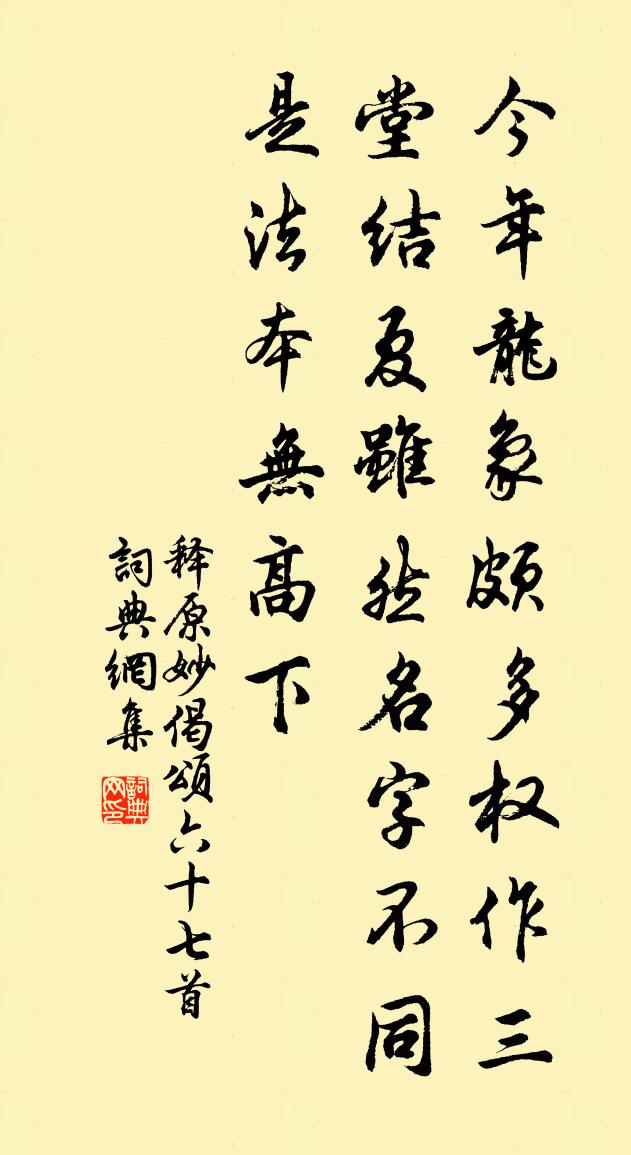 今年龍象頗多权作三
堂结夏雖然名字不同
是法本無高下
释原妙偈頌六十七首
詞典網集
詞典网印